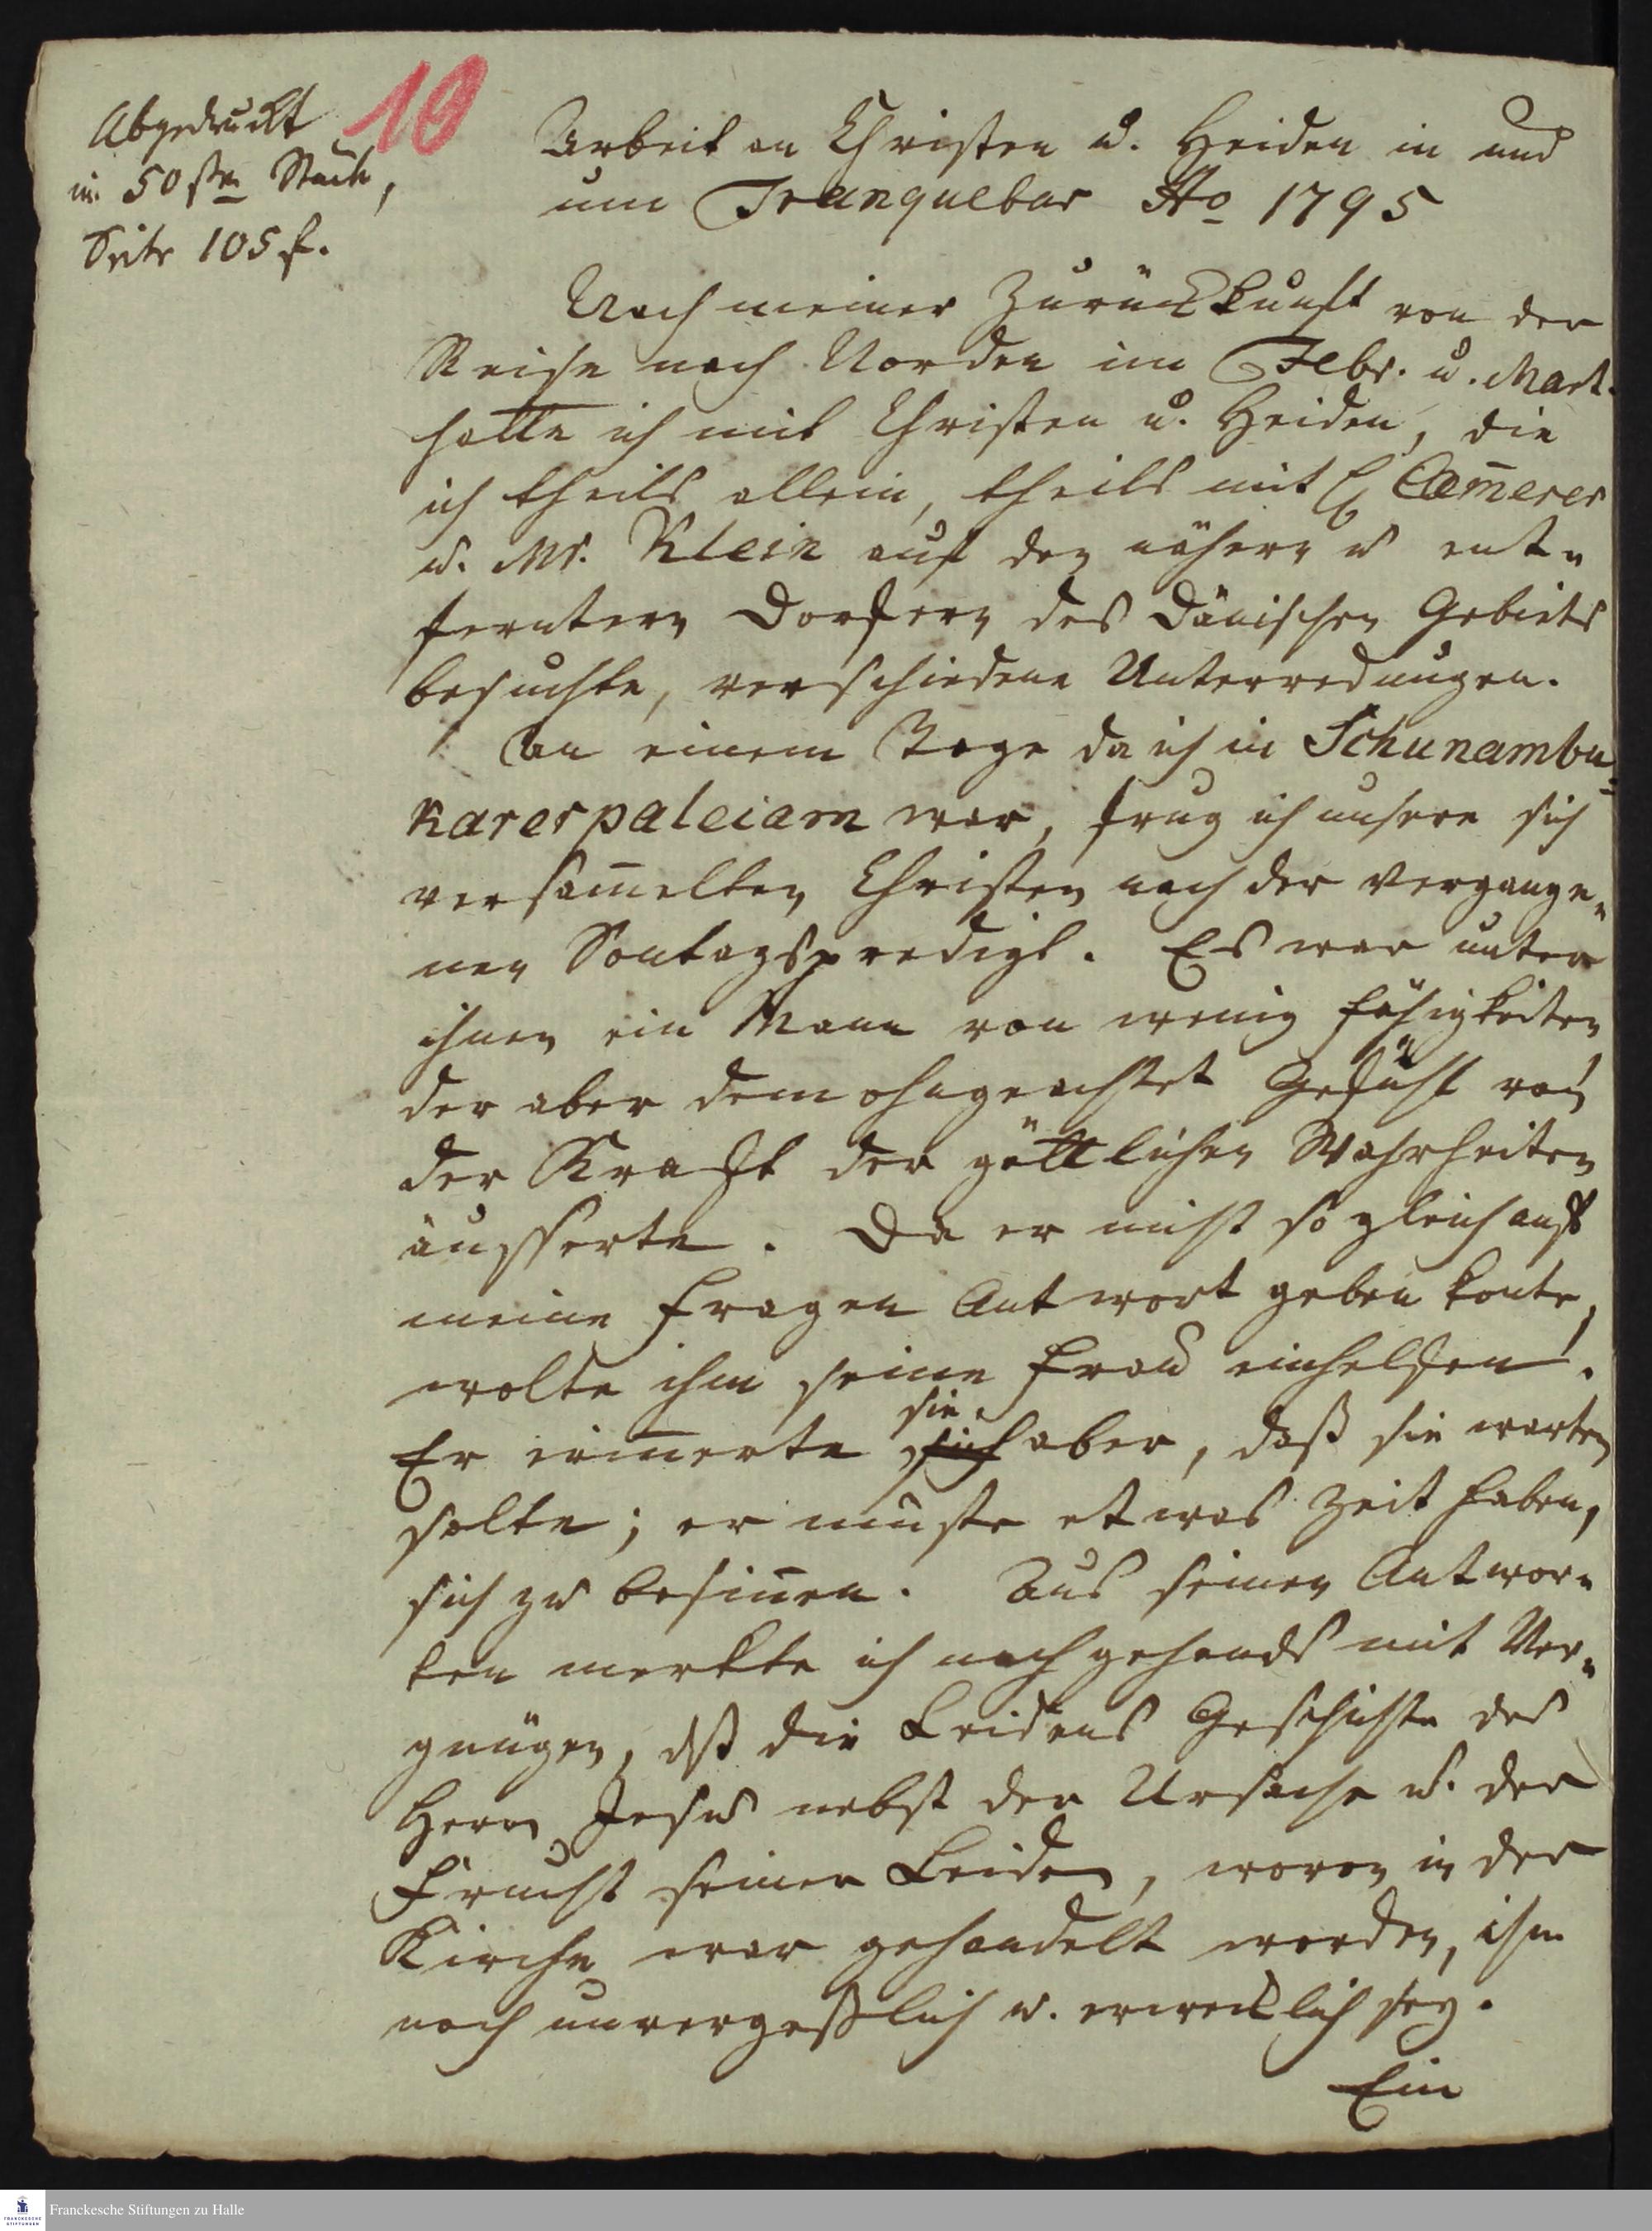 Abgedruckt
im 50sten Stück,
Seite 105 f.
10
Arbeit an Christen u. Heiden in und
um Tranquebar Ao 1795
Nach meiner Zurückkunft von der
Reise nach Norden im Febr. u. Mart.
hatte ich mit Christen u. Heiden, die
ich theils allein, theils mit H Cam̄erer
u. Mr. Klein auf den nähern u ent-
ferntern Dorfern des Dänischen Gebiets
besuchte, verschiedene Unterredungen.
An einem Tage da ich in Schunambu-
karerpaleiam war, frug ich unsere sich
versam̄elten Christen nach der vergange-
nen Sontagspredigt. Es war unter
ihnen ein Mann von wenig Fähigkeiten
der aber demohngeachtet Gefühl von
der Kraft der göttlichen Wahrheiten
äusserte. Da er nicht so gleich auf
meine Fragen Antwort geben konte,
wolte ihm seine Frau einhelfen.
Er erin̄erte sich sie aber, daß sie warten
solte; er müste etwas Zeit haben,
sich zu besin̄en. Aus seinen Antwor-
ten merkte ich nachgehends mit Ver-
gnügen, dß die Leidens Geschichte des
Herrn Jesu nebst der Ursache u. der
Frucht seiner Leiden, wovon in der
Kirche war gehandelt worden, ihm
noch unvergeßlich u. erwecklich sey.
Ein
Franckesche Stiftungen zu Halle
FRANCKESCHE
STIFTUNGEN